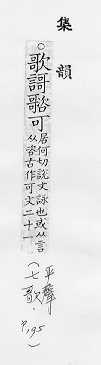 集韻
○歌謌𣤶可
居何切說文詠也或从言
从咨古作可文二十一
(平聲
七歌.
P.195)